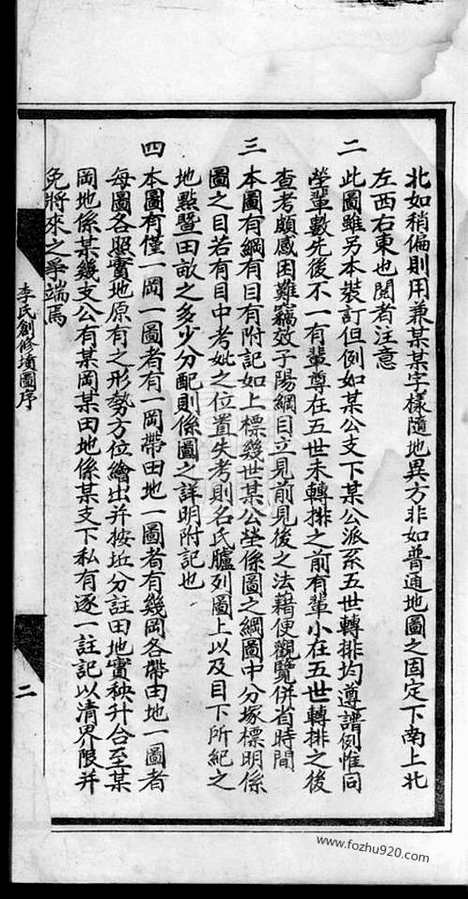 北如稍偏則用兼某某字樣隨地異方非如普通地圖之固定下南上北
左西右東也閱者注意
二 此圖雖另本裝訂但例如某公支下某公派系五世轉排均遵譜例惟同
塋輩數先後不一有輩尊在五世未轉排之前有輩小在五世轉排之後
查考頗感困難竊效子陽綱目立見前見後之法藉便觀覽併省時間
三 本圖有綱有目有附記如上標幾世某公塋係圖之綱圖中分塚標明係
圖之目若有目中考妣之位置失考則名氏臚列圖上以及目下所紀之
地點暨田畝之多少分配則係圖之詳明附記也
四 本圖有僅一岡一圖者有一岡帶田地一圖者有幾岡各帶田地一圖者
每圖各照實地原有之形勢方位繪出并按坵分註田地實秧升合至某
岡地係某幾支公有某岡某田地係某支下私有逐一註記以清界限并
免將來之爭端焉
李氏創修墳圖序
二
www.fozhu920.com